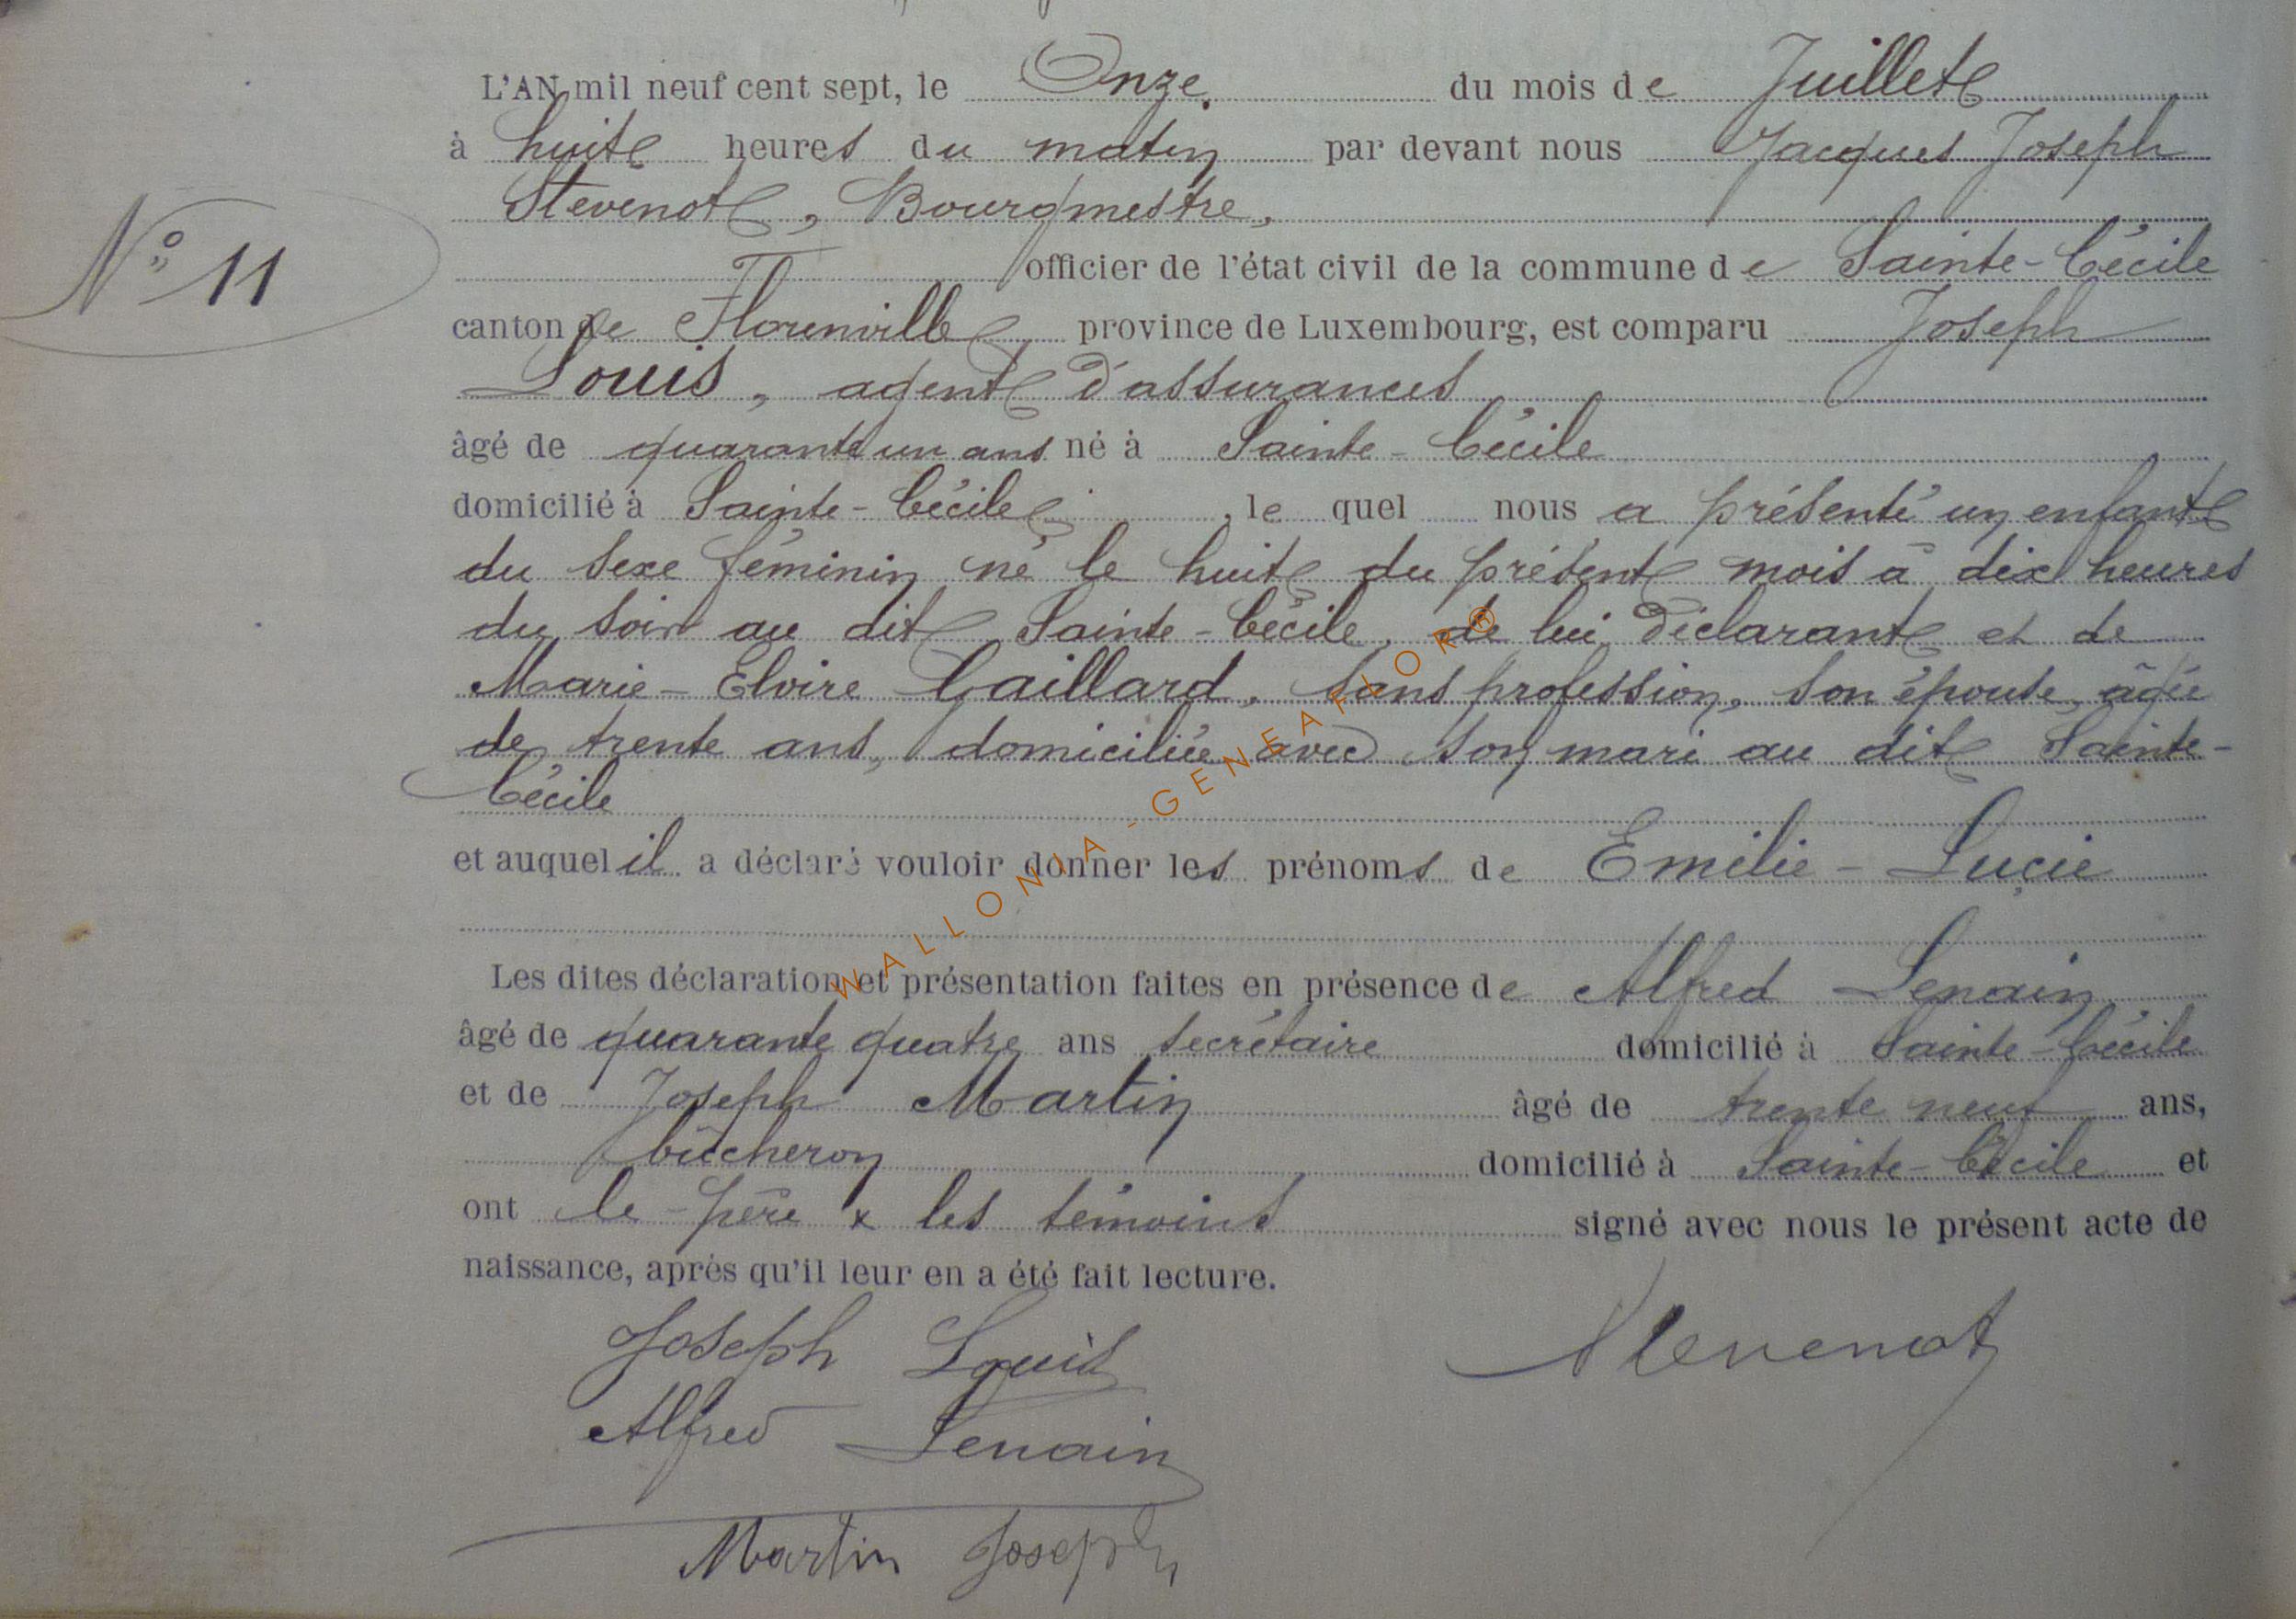 L'AN mil neuf cent sept, le Onze du mois de Juillet
à huit heures du matin par devant nous Jacques Joseph
Stévenot, Bourgmestre,
officier de l'état civil de la commune de Sainte-Cécile
N° 11
canton de Florenville province de Luxembourg, est comparu Joseph
Louis, agent d'assurances
âgé de quarante un ans né à Sainte-Cécile
domicilié à Sainte-Cécile, lequel nous a présenté un enfant
du sexe féminin né le huit du présent mois à dix heures
du soir au dit Sainte-Cécile, de lui déclarant et de
Marie-Elvire Gaillard, sans profession, son épouse, âgée
de trente ans, domiciliée avec son mari au dit Sainte-
Cécile
et auquel il a déclaré vouloir donner les prénoms de Emilie-Lucie
Les dites déclaration et présentation faites en présence de Alfred Lenain
âgé de quarante quatre ans secrétaire domicilié à Sainte-Cécile
et de Joseph Martin âgé de trente neuf ans,
bûcheron domicilié à Sainte-Cécile et
ont le père & les témoins signé avec nous le présent acte de
naissance, après qu'il leur en a été fait lecture.
Joseph Louis Stevenot
Alfred Lenain
Martin Joseph
WALLONIA-GENEAFLOR®